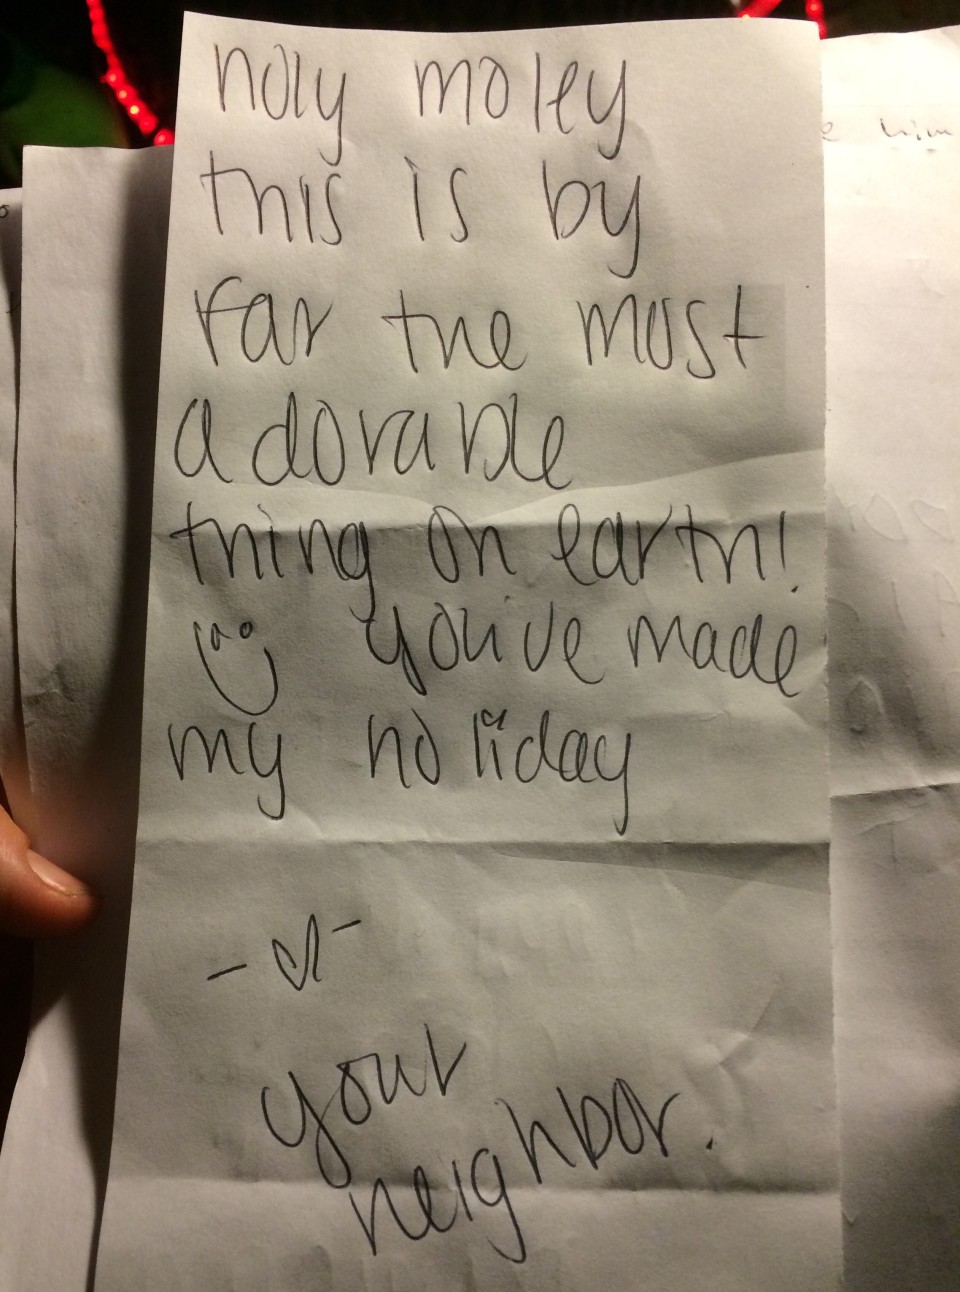 holy moley
this is by
far the most
adorable
thing on earth!
you've made
my holiday
your
neighbor.
him